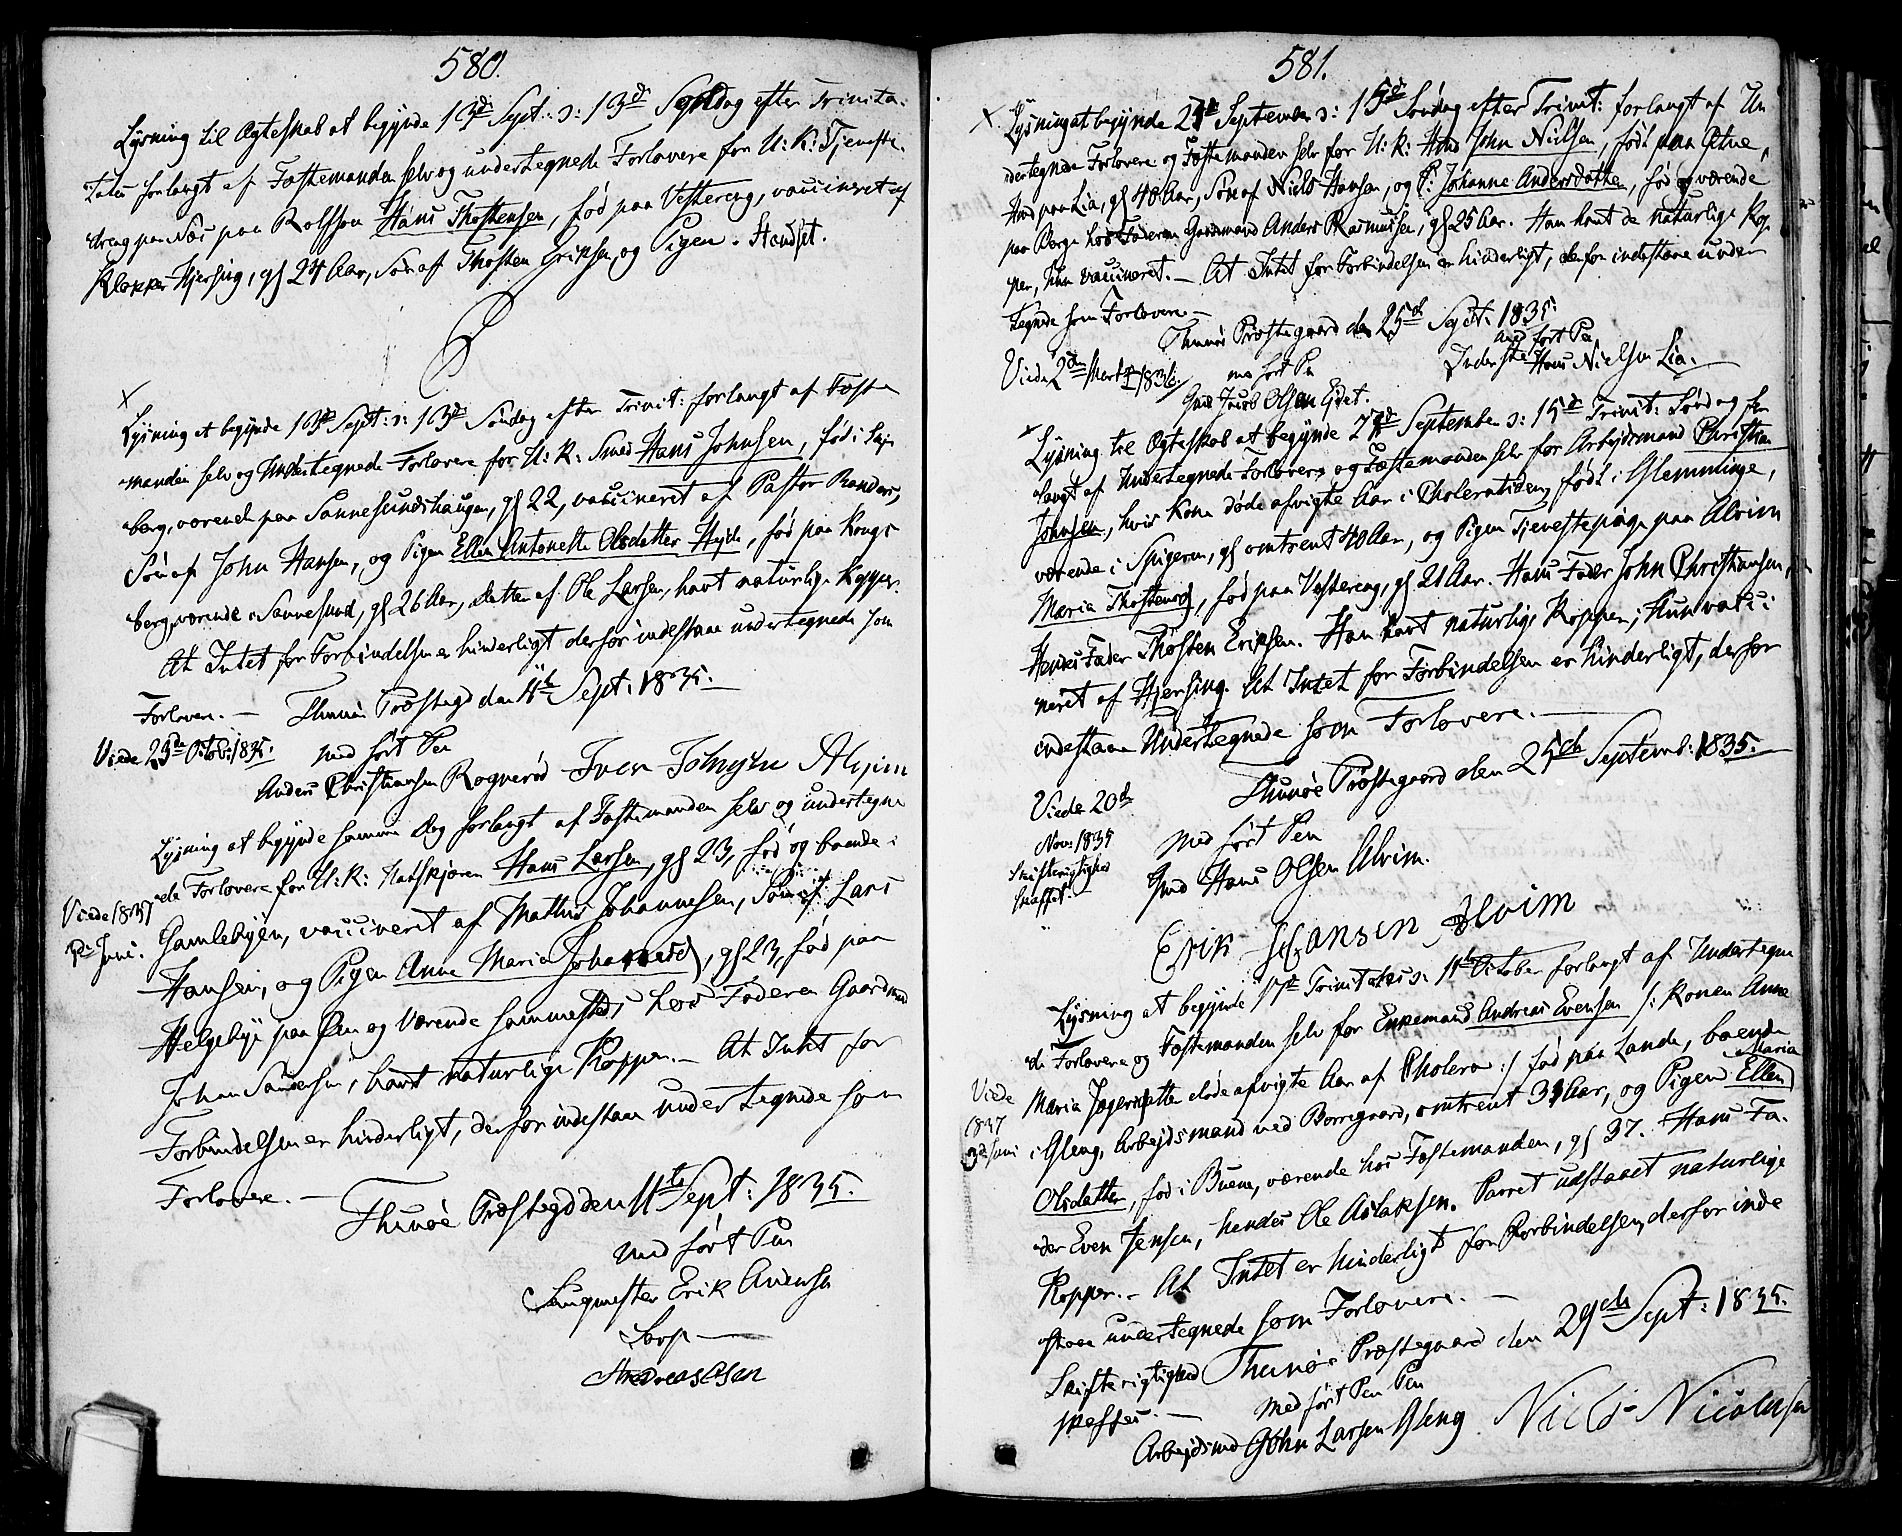 580.
Lysning til Ægteskab at begynde 13de Sept: ɔ: 13de Søndag efter Trinita-
tatis forlangt af Fæstemanden selv og undertegnede Forlovere for U: K: Tjeneste-
dreng paa Næs paa Rolfsøn Hans Thostensen, fød paa Vestereng, vaccineret af
Klokker Hjersing, gl 24 Aar, Søn af Thosten Eriksen og Pigen. Hændset.
X
Lysning at begynde 13de Sept: ɔ: 13de Søndag efter Trinit: forlangt af Fæste-
manden selv og Undertegnede Forlovere for U: K: Smed Hans Johnsen, fød i
berg, værende paa Sannesundshaugen, gl 22, vaccineret af Pastor Randers,
Søn af John Hansen, og Pigen Ellen Antonette Olsdatter Hejde, fød paa Krogs-
berg, værende i Sannesund, gl 26 Aar, Datter af Ole Larsen, havt naturlige Kopper.
At Intet for Forbindelsen er hinderligt derfor indestaae undertegnede som
Forlovere. — Thunøe Præstegd den 11te Sept: 1835.
Viede 23de Octob: 1835.
med ført Pen
Anders Christiansen Rognerød Iver Johnsen Alvim
Lysning at begynde samme Dag forlangt af Fæstemanden selv og undertegne-
de Forlovere for U: K: Hans Larsen, gl 23, fød og boende i
Viede 1837
3die Juni.
Gamlebyen, vaccineret af Mathis Johannesen, Søn af Lars
Hansen, og Pigen Anne Maria Johansd, gl 23, fød paa
Helgebye paa Øen og værende sammesteds hos Faderen Gaardmd
Johan Sandersen, havt naturlige Kopper. — At Intet for
Forbindelsen er hinderligt, derfor indestaae undertegnede som
Forlovere. —
Thunøe Præstegd den 11te Sept: 1835.
med ført Pen
Saugmester Erik Arnesen
Sarp —
Andreas Olsen
581.
X Lysning at begynde 27de September ɔ: 15de Søndag efter Trinit: forlangt af Un-
dertegnede Forlovere og Fæstemanden selv for U: K: Hmd John Nielsen, født paa
Hmd paa Lia, gl 40 Aar, Søn af Niels Hansen, og P: Johanne Andersdatter, fød og værende
paa Berge hos Faderen Gaardmand Anders Rasmussen, gl 25 Aar. Han havt de naturlige Kop-
per, hun vaccineret. — At Intet for Forbindelsen er hinderligt, derfor indestaae under-
tegnede som Forlovere —
Thunøe Præstegaard den 25de Sept: 1835.
Viede 2den Marts 1836.
med ført Pen
med ført Pen
Inderste Hans Nielsen Lia. —
Gmd Jacob Olsen Eidet.
X
Lysning til Ægteskab at begynde 27de September ɔ: 15de Trinit: Søndag for-
langt af Undertegnede Forlovere og Fæstemanden selv for Arbejdsmand Christian
Johnsen, hvis Kone døde afvigte Aar i Choleratiden, født i Glemminge,
værende i Spigeren, gl omtrent 40 Aar, og Pigen Tjenestepige paa Alvim
Maria Thostensd, fød paa Vestereng, gl 21 Aar. Hans Fader John Christiansen,
Hendes Fader Thosten Eriksen. Han havt naturlige Kopper; Hun vacci-
neret af Hjersing. At Intet for Forbindelsen er hinderligt, derfor
indestaae Undertegnede som Forlovere. —
Thunøe Præstegaard den 25de Septemb: 1835. —
Viede 20de
Nov: 1835
Skifterigtighed
skaffet.
med ført Pen
Gmd Hans Olsen Alvim.
Erik Hansen Alvim
Lysning at begynde 17de Trinitatis ɔ: 11te October forlangt af Undertegne-
de Forlovere og Fæstemanden selv for Enkemand Andreas Evensen /: Konen Anne
Maria Jørgensdatter døde afvigte Aar af Cholera :/ fød paa Lande, boende
Viede
1837
3de Juni
i Gleng, Arbejdsmand ved Borregaard, omtrent 31 Aar, og Pigen Ellen Maria
Olsdatter, fød i Buene, værende hos Fæstemanden, gl 37. Hans Fa-
der Even Jensen, hendes Ole Aslaksen. Parret udstaaet naturlige
Kopper. — At Intet er hinderligt for Forbindelsen, derfor inde-
staae undertegnede som Forlovere. —
Skifterigtighed Thunøe Præstegaard den 29de Sept: 1835.
skaffes. —
Med ført Pen Pen
Arbejdsmd John Larsen Gleng. Niels Nicolaisen